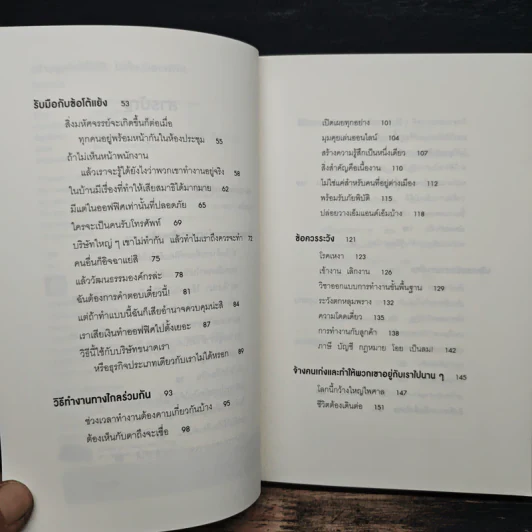 รับมือกับข้อโต้แย้ง 53
สิ่งมหัศจรรย์จะเกิดขึ้นก็ต่อเมื่อ
ทุกคนอยู่พร้อมหน้ากันในห้องประชุม 55
ถ้าไม่เห็นหน้าพนักงาน
แล้วเราจะรู้ได้ยังไงว่าพวกเขาทำงานอยู่จริง 58
ในบ้านมีเรื่องที่ทำให้เสียสมาธิได้มากมาย 62
มีแต่ในออฟฟิศเท่านั้นที่ปลอดภัย 65
ใครจะเป็นคนรับโทรศัพท์ 69
บริษัทใหญ่ ๆ เขาไม่ทำกัน แล้วทำไมเราถึงควรจะทำ 72
คนอื่นก็อิจฉาแย่สิ 75
แล้ววัฒนธรรมองค์กรล่ะ 78
ฉันต้องการคำตอบเดี๋ยวนี้! 81
แต่ถ้าทำแบบนี้ฉันก็เสียอำนาจควบคุมน่ะสิ 84
เราเสียเงินทำออฟฟิศไปตั้งเยอะ 87
วิธีนี้ใช้กับบริษัทขนาดเรา
หรือธุรกิจประเภทเดียวกับเราไม่ได้หรอก 89
วิธีทำงานทางไกลร่วมกัน 93
ช่วงเวลาทำงานต้องคาบเกี่ยวกันบ้าง 95
ต้องเห็นกับตาถึงจะเชื่อ 98
เปิดเผยทุกอย่าง 101
มุมคุยเล่นออนไลน์ 104
สร้างความรู้สึกเป็นหนึ่งเดียว 107
สิ่งสำคัญคือเนื้องาน 110
ไม่ใช่แค่สำหรับคนที่อยู่ต่างเมือง 112
พร้อมรับภัยพิบัติ 115
ปล่อยวางเอ็มแอนด์เอ็มบ้าง 118
ข้อควรระวัง 121
โรคเหงา 123
เข้างาน เลิกงาน 126
วิชาออกแบบการทำงานขั้นพื้นฐาน 129
ระวังตกหลุมพราง 132
ความโดดเดี่ยว 135
การทำงานกับลูกค้า 138
ภาษี บัญชี กฎหมาย โอย เป็นลม! 142
จ้างคนเก่งและทำให้พวกเขาอยู่กับเราไปนาน ๆ 145
โลกนี้กว้างใหญ่ไพศาล 147
ชีวิตต้องเดินต่อ 151